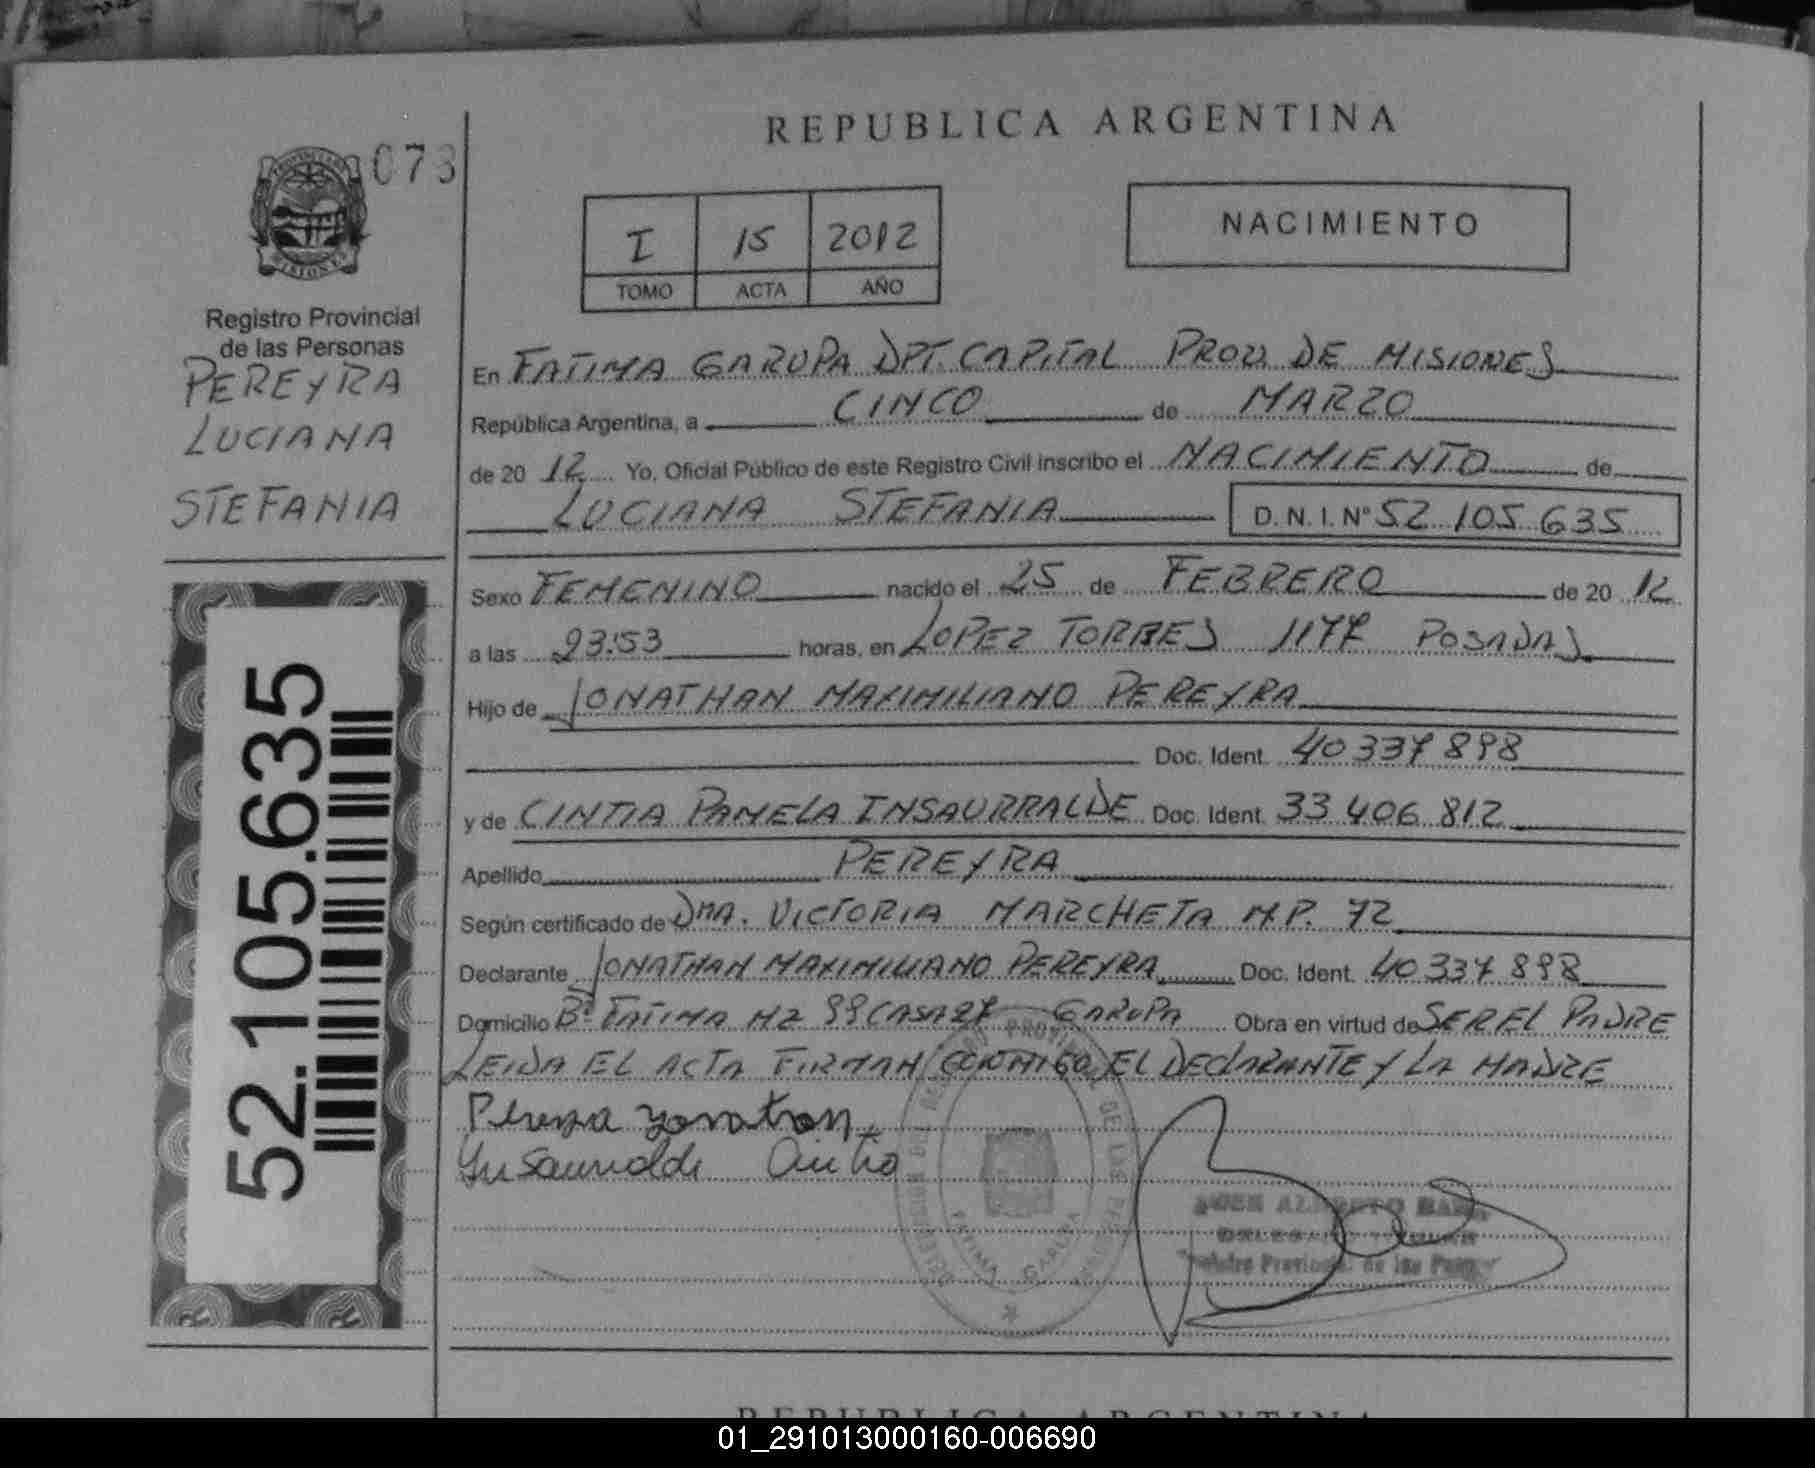 REPUBLICA ARGENTINA
073
PROVINCIA DE MISIONES
Registro Provincial
de las Personas
PEREYRA
LUCIANA
STEFANIA
52.105.635
I 15 2012
TOMO ACTA AÑO
NACIMIENTO
En FATIMA GARUPA DPT. CAPITAL PROV. DE MISIONES
República Argentina, a CINCO de MARZO
de 20 12 Yo, Oficial Público de este Registro Civil inscribo el NACIMIENTO de
LUCIANA STEFANIA D.N.I. N° 52 105 635
Sexo FEMENINO nacido el 25 de FEBRERO de 20 12
a las 23:53 horas, en LOPEZ TORRES 1177 POSADAS
Hijo de JONATHAN MAXIMILIANO PEREYRA
Doc. Ident. 40 337 898
y de CINTIA PAMELA INSAURRALDE Doc. Ident. 33 406 812
Apellido PEREYRA
Según certificado de Dra. VICTORIA MARCHETA M.P. 72
Declarante JONATHAN MAXIMILIANO PEREYRA Doc. Ident. 40 337 898
Domicilio B° FATIMA MZ 99 CASA 27 GARUPA Obra en virtud de SER EL PADRE
LEIDA EL ACTA FIRMAN CONMIGO EL DECLARANTE Y LA MADRE
Pereyra Yonatan
Insaurralde Cintia
DELEGACION DEL REGISTRO PROVINCIAL DE LAS PERSONAS
FATIMA GARUPA
DELEGADO TITULAR
Registro Provincial de las Personas
REPUBLICA ARGENTINA
01_291013000160-006690